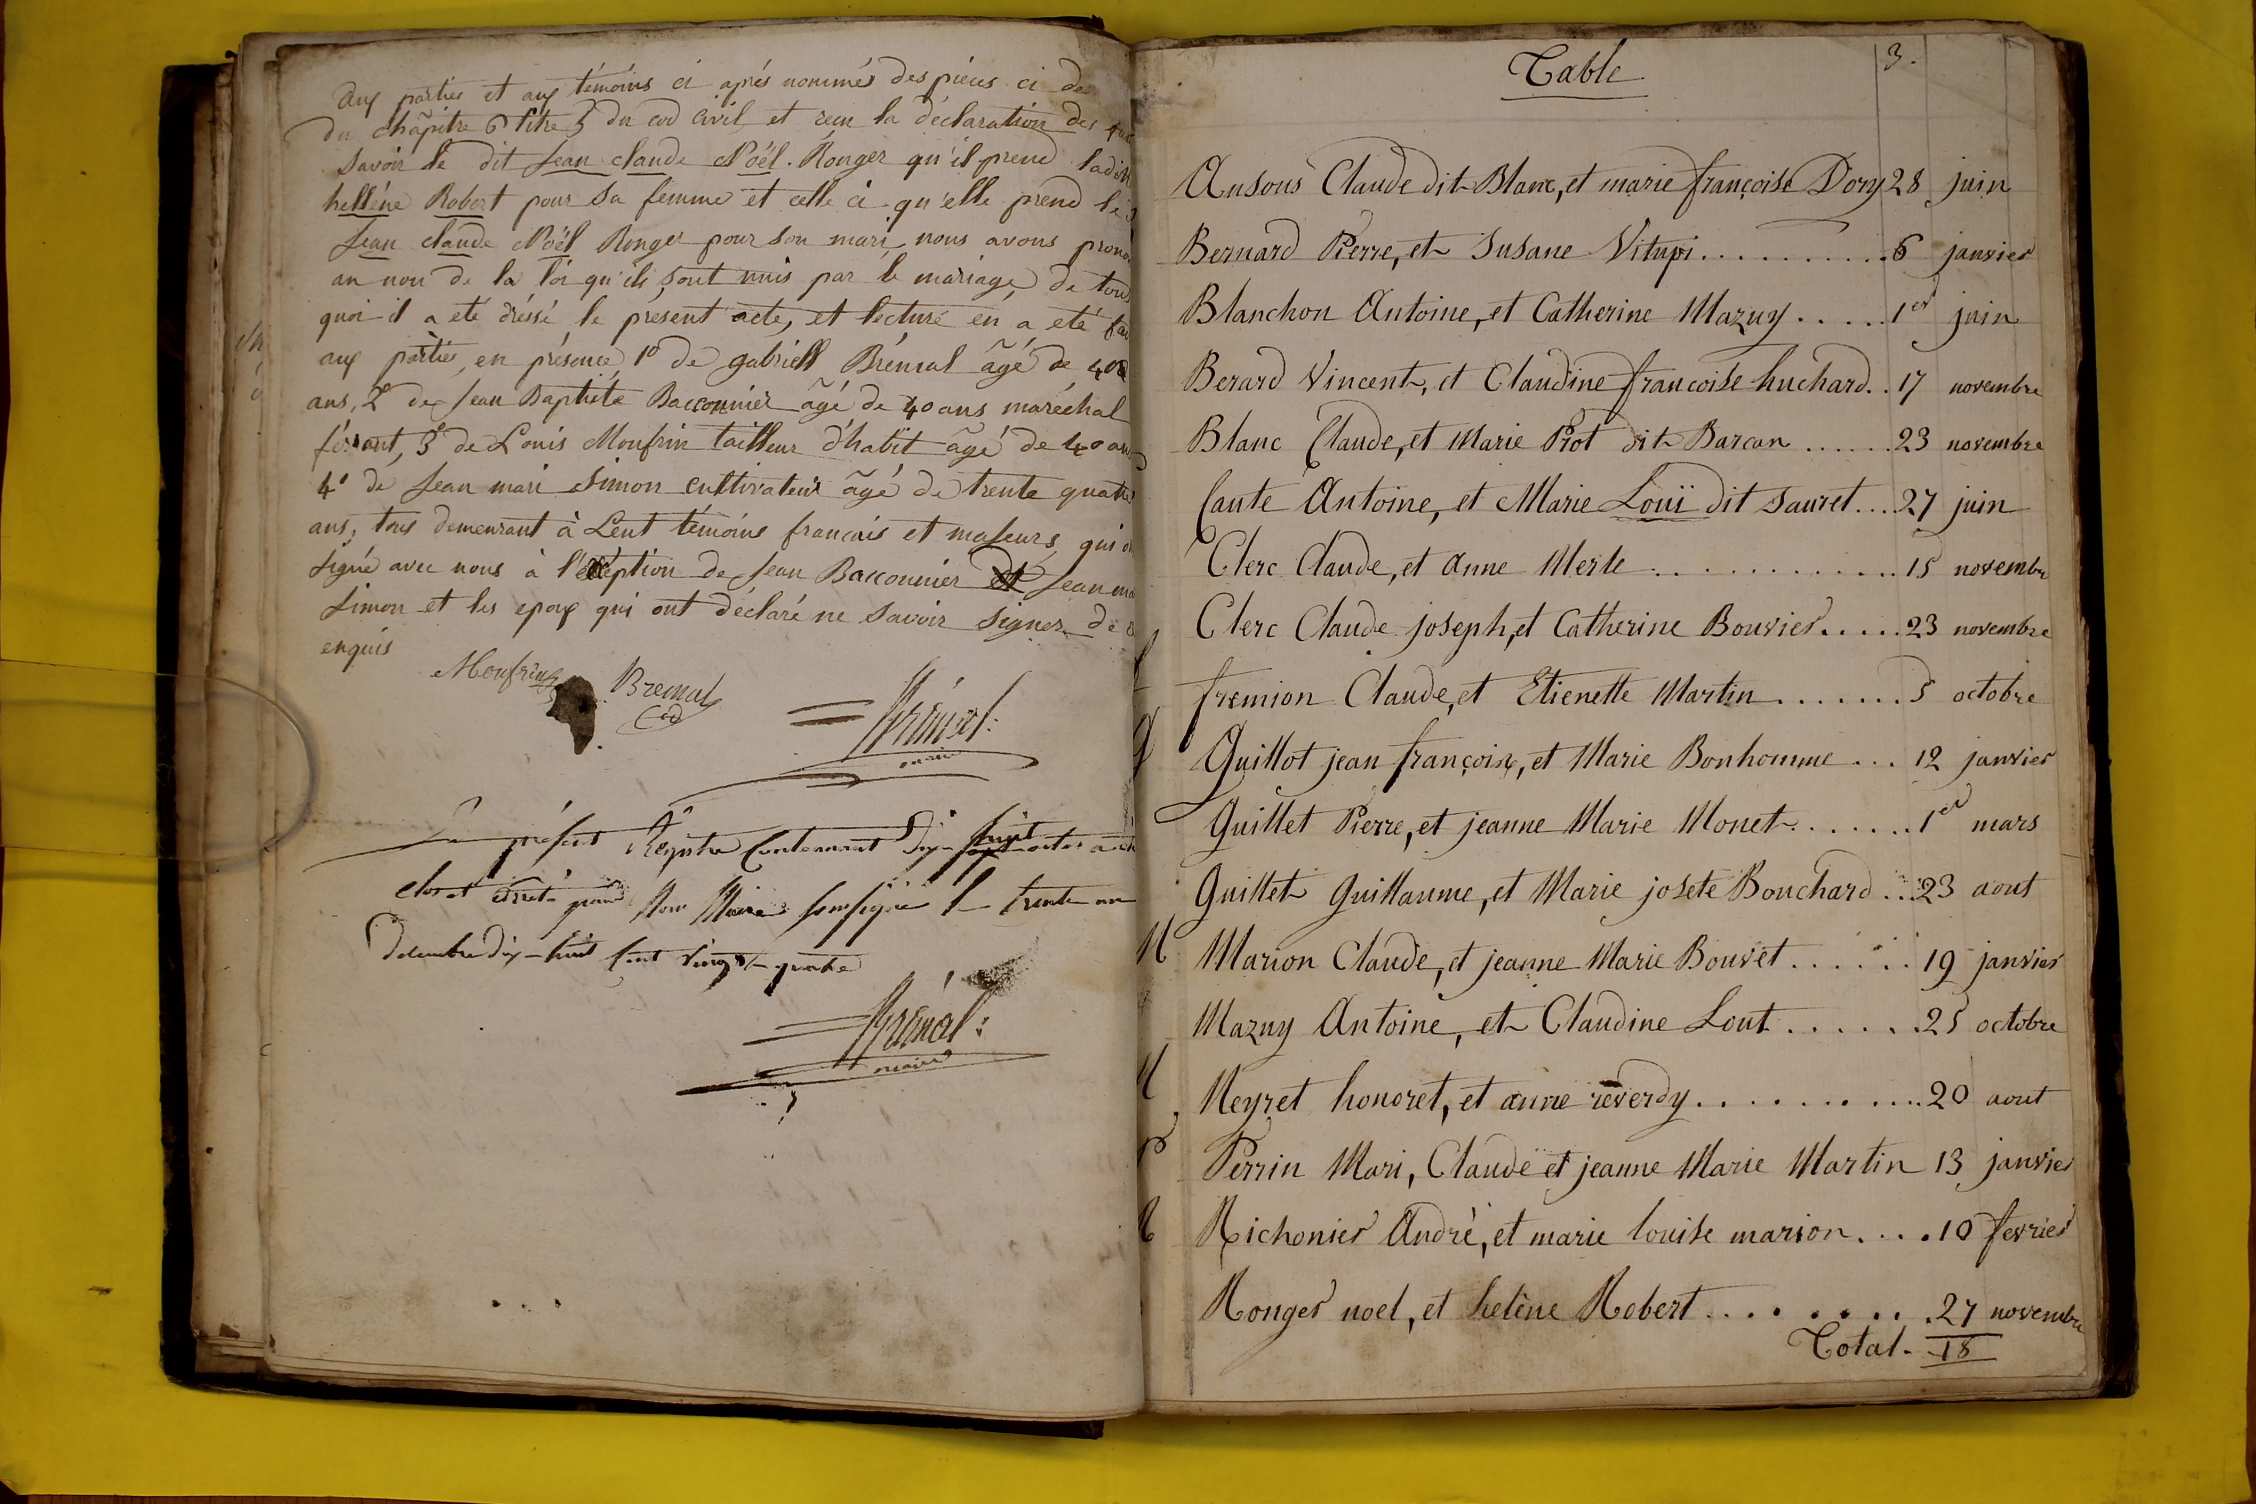 aux parties et aux témoins ci après nommés des pièces ci des
du chapitre 6 titre 5 du cod civil et recu la déclaration des
savoir le dit Jean claude Noël Ronger qu'il prend ladit
hellène Robert pour sa femme et celle ci qu'elle prend le
Jean claude Noël Ronger pour son mari, nous avons prono
au non de la loi qu'ils sont unis par le mariage, de tous
quoi il a eté dréssé le présent acte, et lecture en a eté fai
aux parties, en présence 1º de gabriell Brénal âgé de 40
ans, 2º de Jean Baptiste Bacconnier âgé de 40 ans maréchal
férrant, 3º de Louis Monfrin tailleur d'habit âgé de 40 ans
4º de Jean mari Simon cultivateur âgé de trente quatre
ans, tous demeurant à Lent témoins francais et majeurs, qui o
signé avec nous à l'eception de Jean Bacconnier et Jean ma
Simon et les epoux qui ont déclaré ne savoir signer de
enquis
Monfrin Bremal
Brénal
maire
Le présent Registre Contenant Dix-huit actes a été
Clos et arreté par Nous Maire soussigné le trente un
Décembre Dix-huit Cent Vingt-quatre
Brénal
maire
Table 3.
Ansous Claude dit Blanc, et marie françoise Dory 28 juin
Bernard Pierre, et Susane Vitupi .......... 6 janvier
Blanchon Antoine, et Catherine Mazuy ..... 1er juin
Berard Vincent, et Claudine francoise huchard .. 17 novembre
Blanc Claude, et Marie Piot dit Barcan ...... 23 novembre
Cante Antoine, et Marie Louï dit Sauret ... 27 juin
Clerc Claude, et Anne Merle ............. 15 novembre
Clerc Claude joseph, et Catherine Bouvier ..... 23 novembre
fremion Claude, et Etienette Martin ....... 5 octobre
g Guillot jean françois, et Marie Bonhomme ... 12 janvier
Guillet Pierre, et jeanne Marie Monet ....... 1er mars
Guillet Guillaume, et Marie josete Bouchard ... 23 aout
M Marion Claude, et jeanne Marie Bouvet ...... 19 janvier
Mazuy Antoine, et Claudine Lout ....... 25 octobre
N Neyret honoret, et anne reverdy ........... 20 aout
P Perrin Mari, Claude et jeanne Marie Martin 13 janvier
R Richonier Andrè, et marie louise marion .... 10 fevrier
Ronger noel, et helène Robert ......... 27 novembre
Total. 18